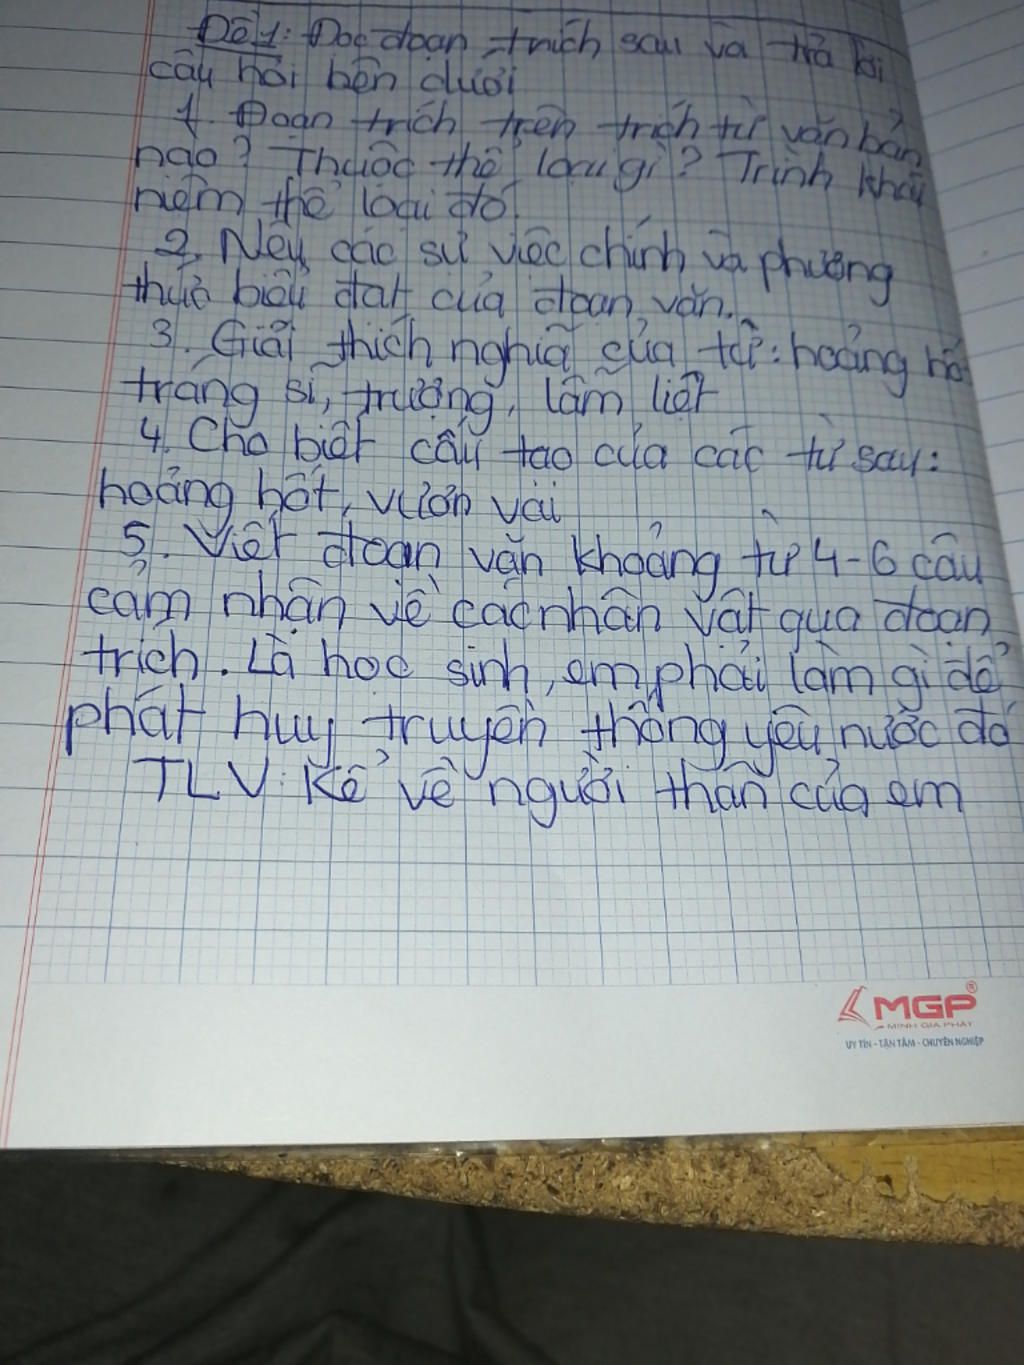 Đề 1: Đọc đoạn trích sau và trả lời
câu hỏi bên dưới
1. Đoạn trích trên trích từ văn bản
nào? Thuộc thể loại gì? Trình khái
niệm thể loại đó.
2. Nêu các sự việc chính và phương
thức biểu đạt của đoạn văn.
3. Giải thích nghĩa của từ: hoảng hốt
tráng sĩ, trượng, lẫm liệt
4. Cho biết cấu tạo của các từ sau:
hoảng hốt, vươn vai
5. Viết đoạn văn khoảng từ 4-6 câu
cảm nhận về các nhân vật qua đoạn
trích. Là học sinh, em phải làm gì để
phát huy truyền thống yêu nước đó
TLV: Kể về người thân của em
MGP
MINH GIA PHÁT
UY TÍN - TẬN TÂM - CHUYÊN NGHIỆP